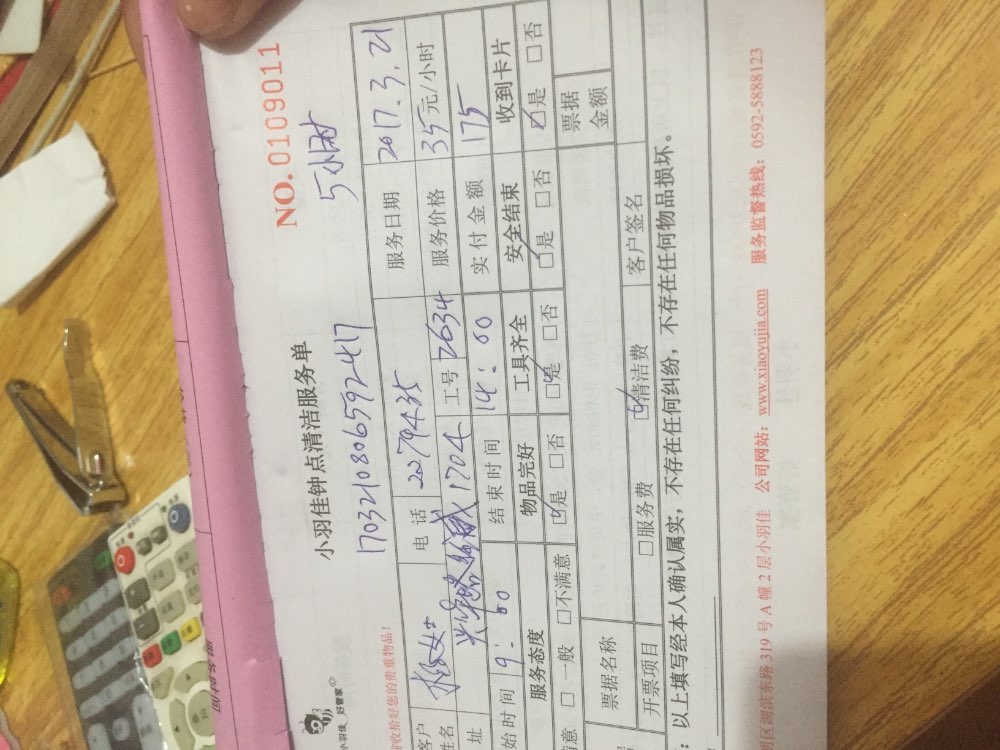 NO.0109011
小羽佳钟点清洁服务单
5小时
小羽佳 好管家
1703210806592417
收拾好您的贵重物品!
客户 女士 电话 2279435 服务日期 2017.3.21
址 1704 工号 2634 服务价格 35元/小时
始时间 9:00 结束时间 14:00 实付金额 175
服务态度 物品完好 工具齐全 安全结束 收到卡片
满意 □一般 □不满意 ☑是 □否 ☑是 □否 ☑是 □否 ☑是 □否
票据名称 票据金额
开票项目 □服务费 ☑清洁费 客户签名
:以上填写经本人确认属实,不存在任何纠纷,不存在任何物品损坏。
湖滨东路319号A幢2层小羽佳 公司网站:www.xiaoyujia.com 服务监督热线:0592-5888123